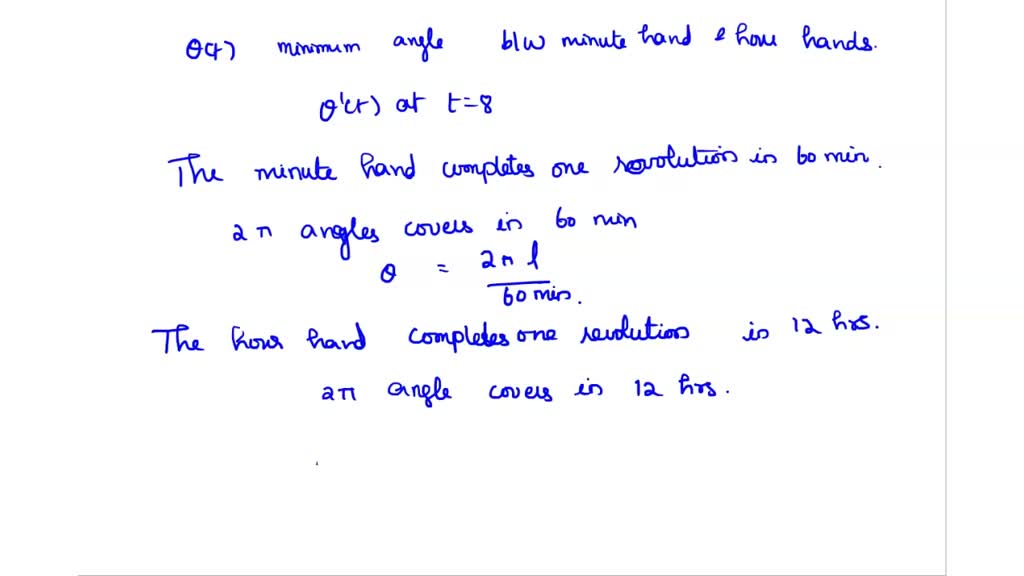 θ(t) minimum angle b/w minute hand & hour hands.
θ'(t) at t=8
The minute hand completes one revolution is 60 min.
2π angles covers in 60 min
θ = 2π t / 60 min.
The hour hand completes one revolution is 12 hrs.
2π angle covers in 12 hrs.